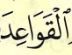 ٱلْقَوَاعِدَ